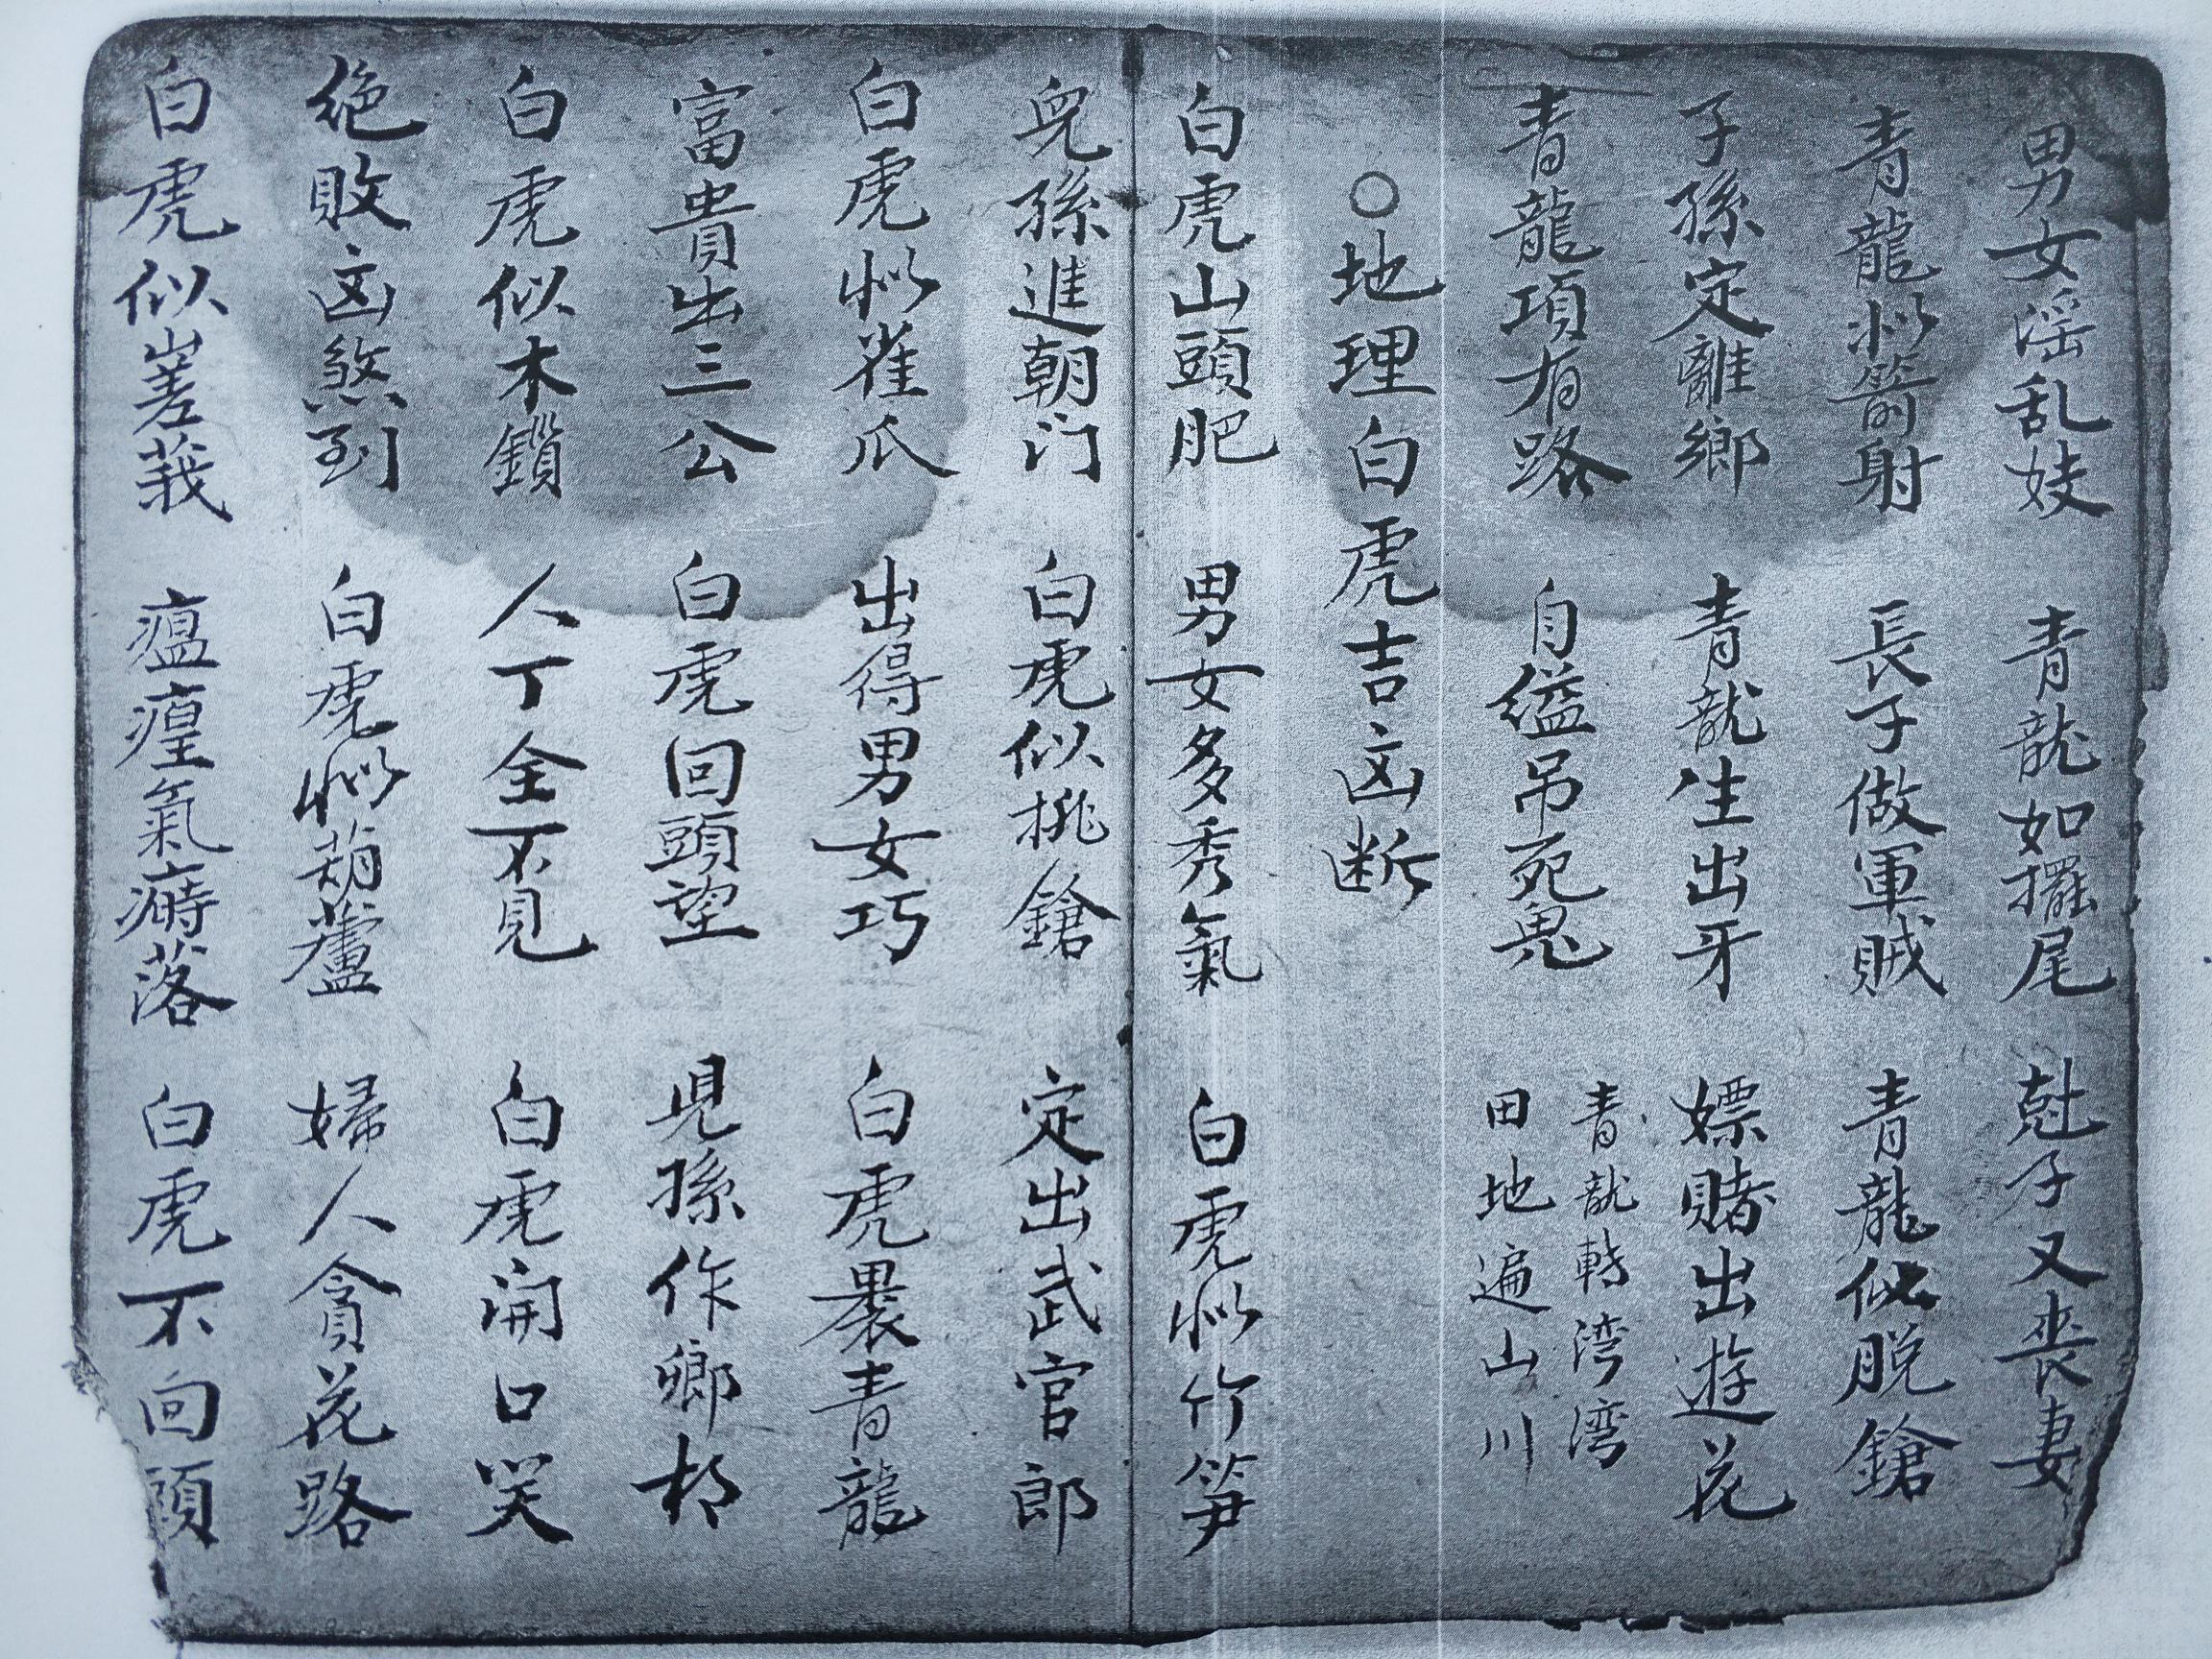 男女淫乱妓　青龍如擺尾　尅子又丧妻
青龍似箭射　長子做軍賊　青龍似脱鎗
子孫定離鄉　青龍生出牙　嫖賭出遊花
青龍項有路　自縊吊死鬼　青龍轉湾湾
田地遍山川
○地理白虎吉凶断
白虎山頭肥　男女多秀氣　白虎似竹笋
兒孫進朝门　白虎似挑鎗　定出武官郎
白虎似雀爪　出得男女巧　白虎裹青龍
富貴出三公　白虎回頭望　兒孫作鄉村
白虎似木鎖　人丁全不見　白虎開口笑
绝敗凶煞到　白虎似葫蘆　婦人貪花路
白虎似嵯莪　瘟瘟氣痔落　白虎不向頭